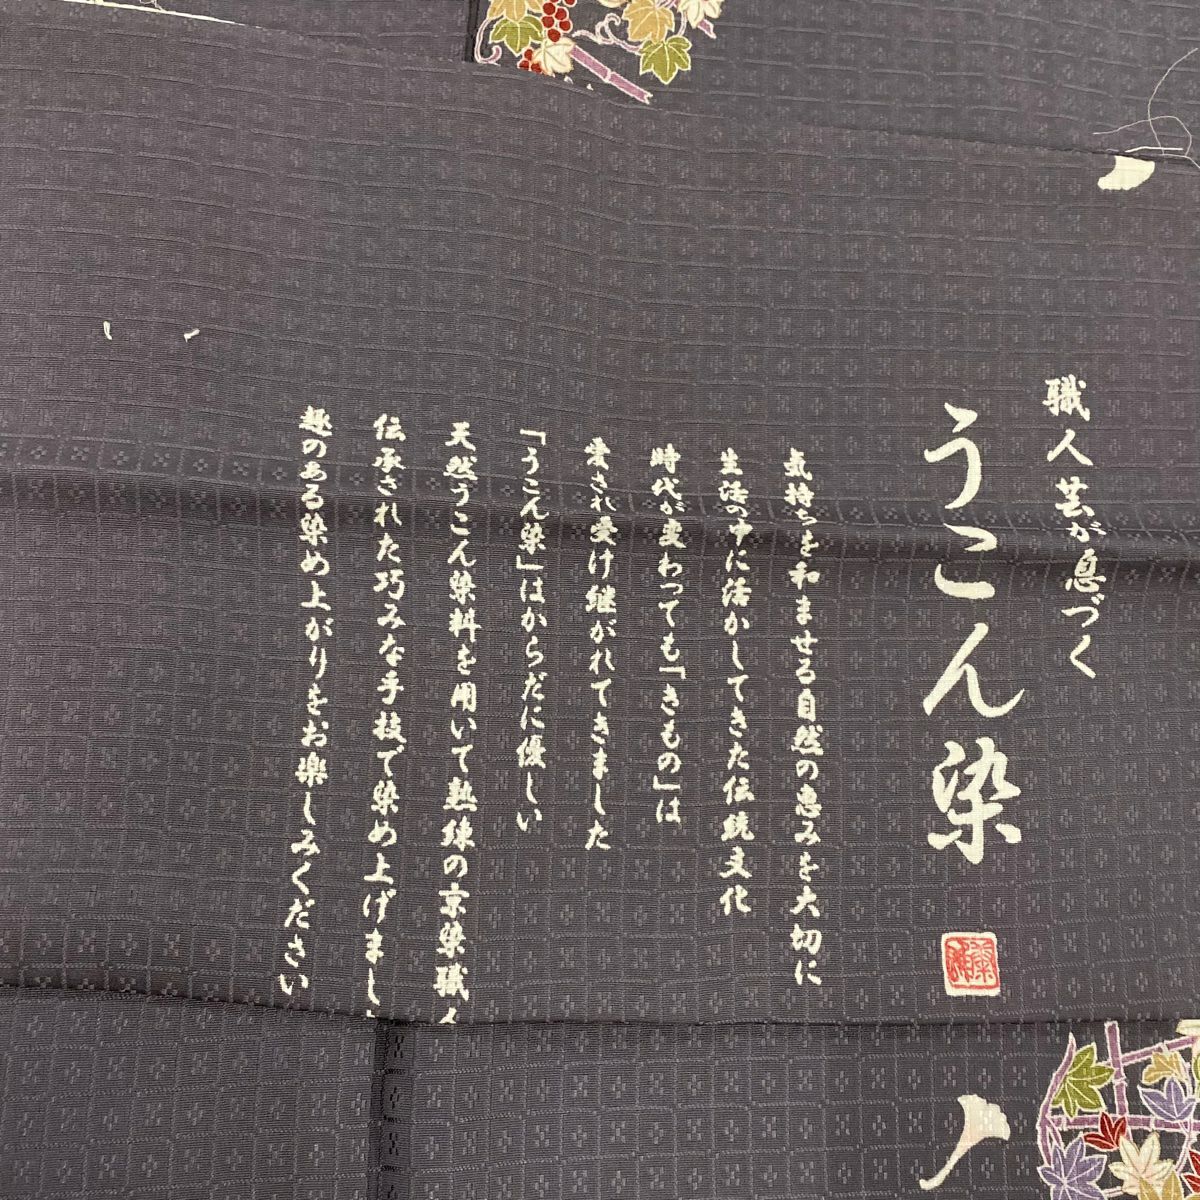 職人芸が息づく
うこん染
気持ちを和ませる自然の恵みを大切に
生活の中に活かしてきた伝統文化
時代が変わっても「きもの」は
愛され受け継がれてきました
「うこん染」はからだに優しい
天然うこん染料を用いて熟練の京染職人
伝承された巧みな手技で染め上げまし
趣のある染め上がりをお楽しみください